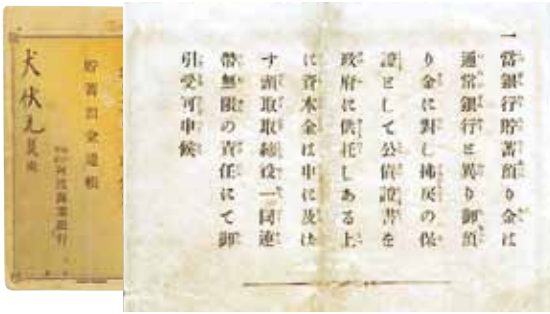 一當銀行貯蓄預り金は
通常銀行と異り御預
り金に對し拂戻の保
證として公債證書を
政府に供托しある上
に資本金は申に及は
す頭取取締役一同連
帶無限の責任にて御
引受可申候
貯蓄預金通帳
犬伏九
銀行